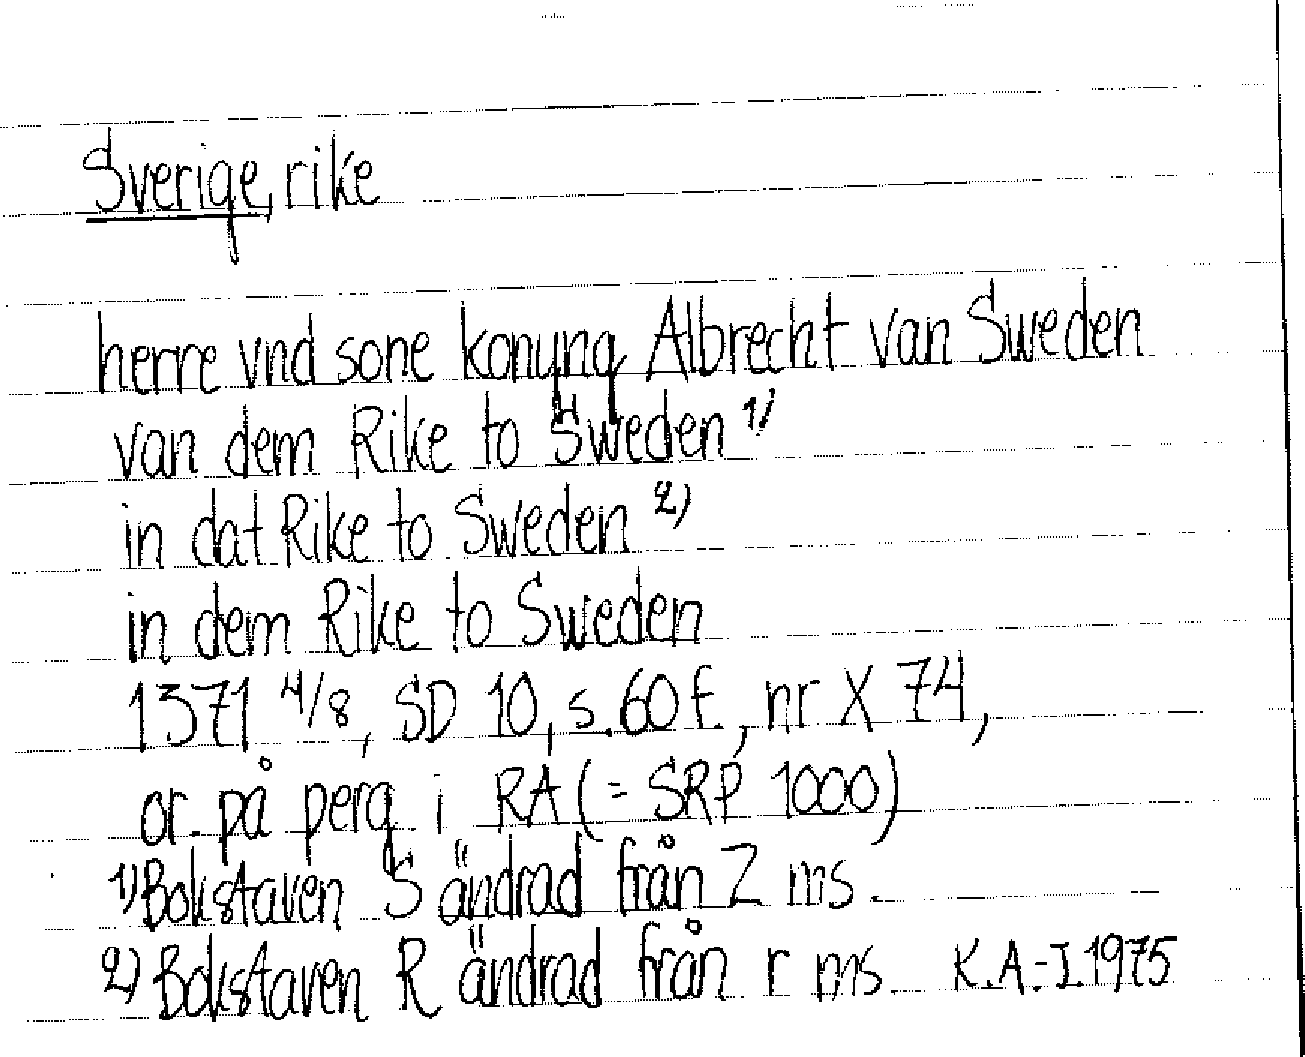 Sverige, rike
herre vnd sone konyng Albrecht van Sweden
van dem Rike to Sweden 1)
in dat Rike to Sweden 2)
in dem Rike to Sweden
1371 4/8, SD 10, s. 60 f., nr X 74,
or. på perg. i RA (= SRP 1000)
1) Bokstaven S ändrad från Z ms.
2) Bokstaven R ändrad från r ms. K.A.-I. 1975